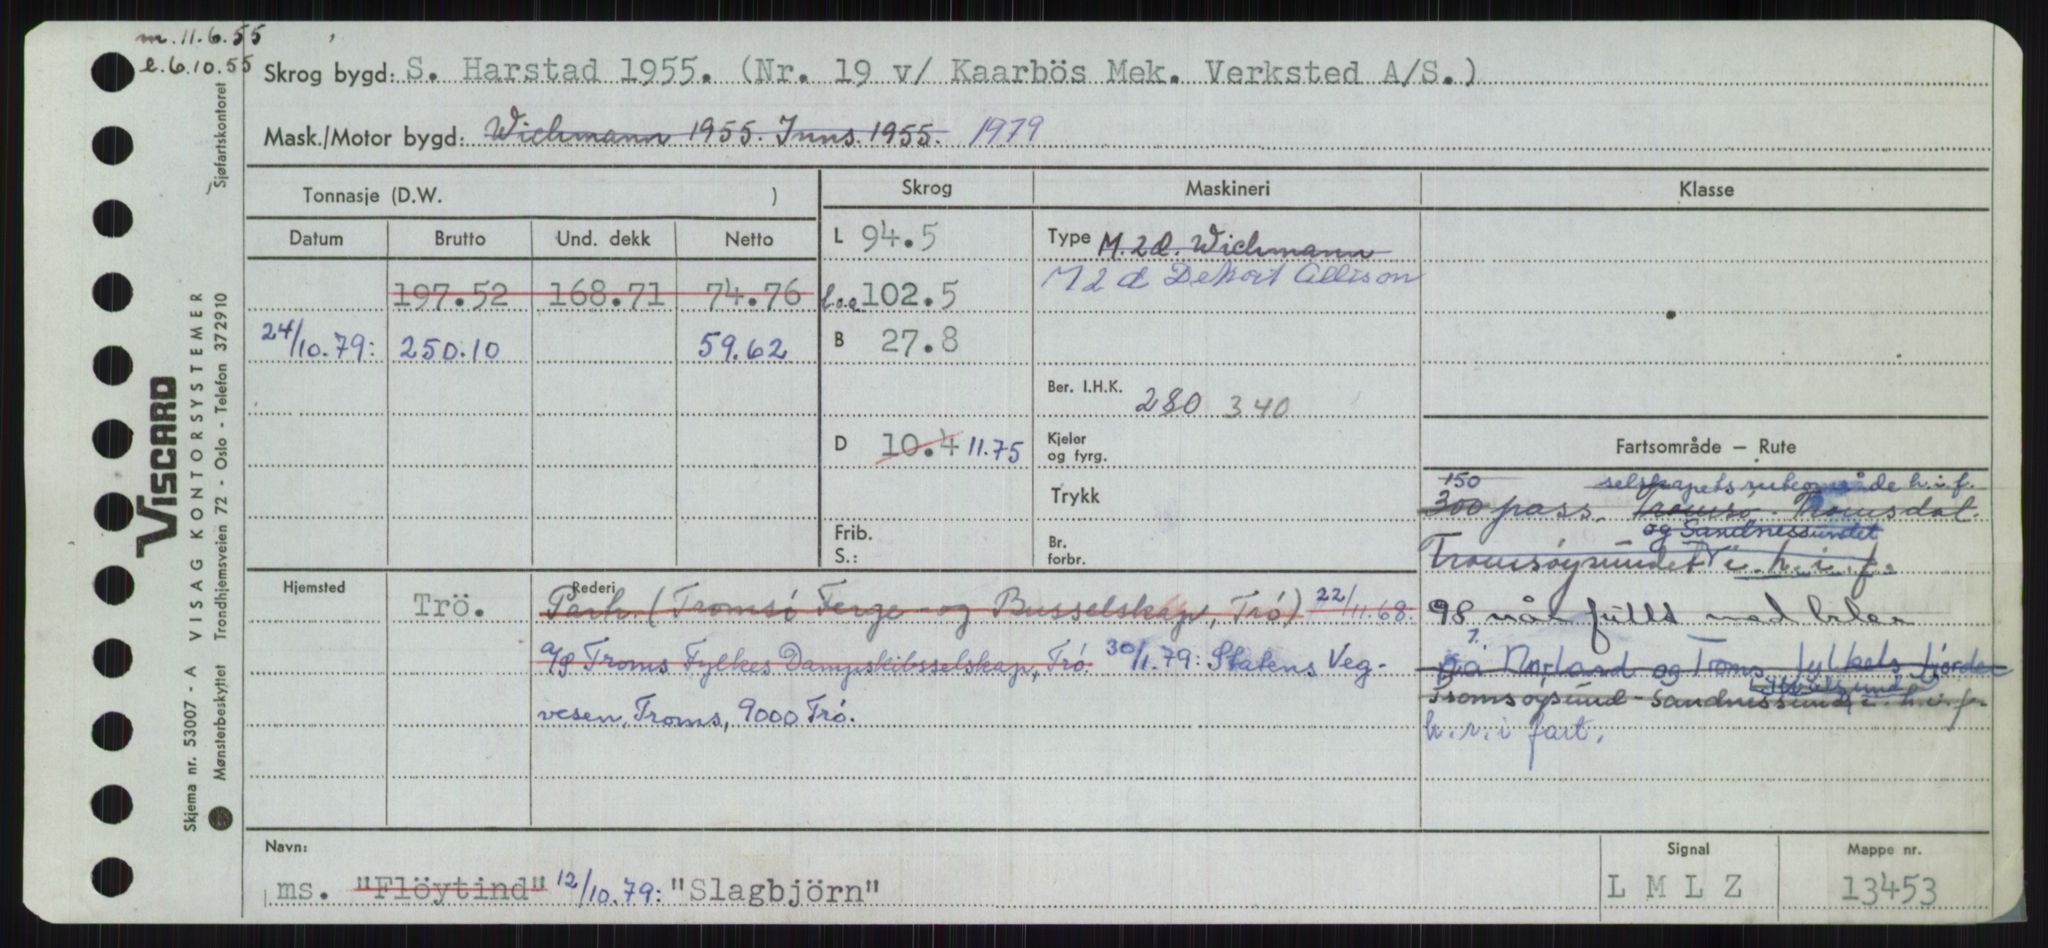 m. 11.6.55
e. 6.10.55
Skrog bygd: S. Harstad 1955. (Nr. 19 v/ Kaarbös Mek. Verksted A/S.)
Mask./Motor bygd: Wichmann 1955. Inns. 1955. 1979
Tonnasje (D.W. )
Skrog
Maskineri
Klasse
Datum Brutto Und. dekk Netto
197.52 168.71 74.76
24/10.79: 250.10 59.62
L 94.5
l.o.a 102.5
B 27.8
D 10.4 11.75
Frib.
S.:
Type M. 2 d. Wichmann
M 2 d Detroit Allison
Ber. I.H.K. 280 340
Kjeler
og fyrg.
Trykk
Br.
forbr.
Fartsområde — Rute
150 selskapets ruteområde h.i.f.
300 pass. Tromsö - Tromsdal.
og Sandnessundet
Tromsöysundet i h.i.f.
98 når fullt med biler
på Norland og Troms fylkes fjorder
Tromsöysund - Sandnessund i h.i.f.
h.r.i fart.
Hjemsted
Trö.
Rederi
Parh. (Tromsö Ferge- og Busselskap, Trö) 22/11.68.
a/s Troms Fylkes Dampskibsselskap, Trö. 30/1.79: Statens Veg-
vesen, Troms, 9000 Trö.
Navn:
ms. "Flöytind" 12/10.79: "Slagbjörn"
Signal
L M L Z
Mappe nr.
13453
Skjema nr. 53007 - A VISAG KONTORSYSTEMER Sjøfartskontoret
Mønsterbeskyttet Trondhjemsveien 72 - Oslo - Telefon 372910
VISCARD